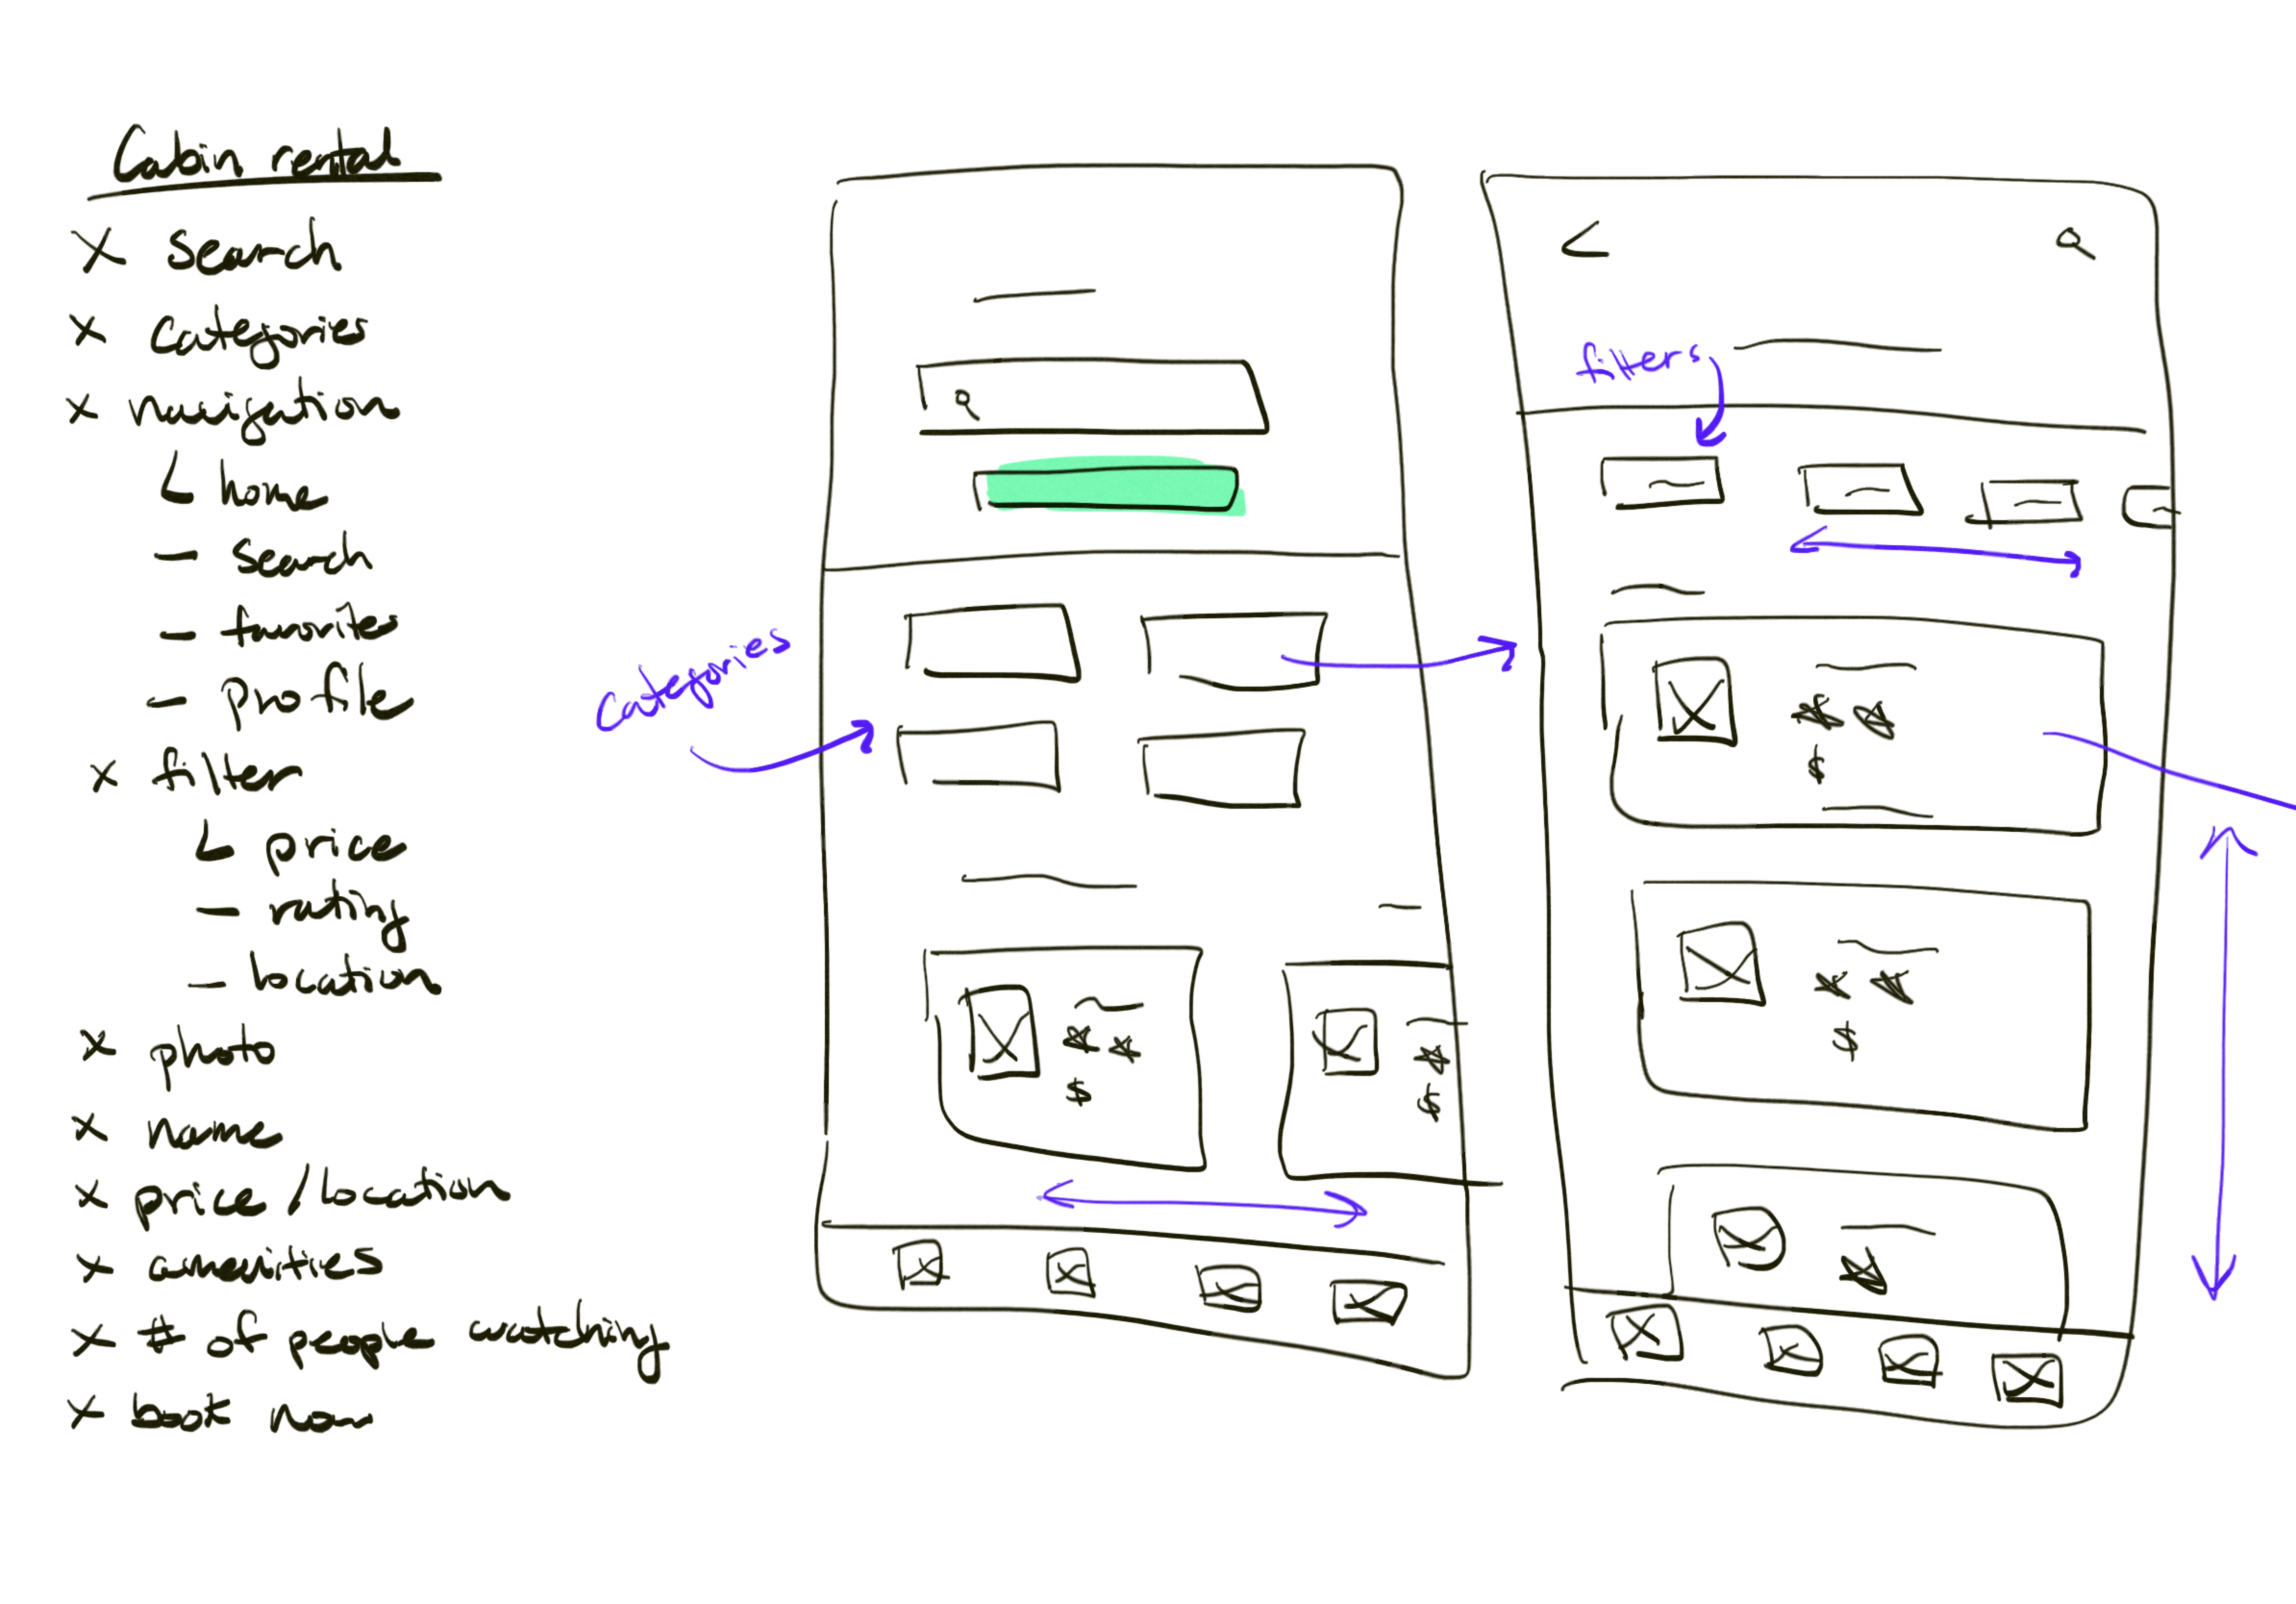 Cabin rental
x search
x categories
x navigation
home
- search
- favorites
- profile
x filter
price
- rating
- location
x photo
x name
x price / location
x amenities
x # of people watching
x book now
categories
$
$
filters
$
$